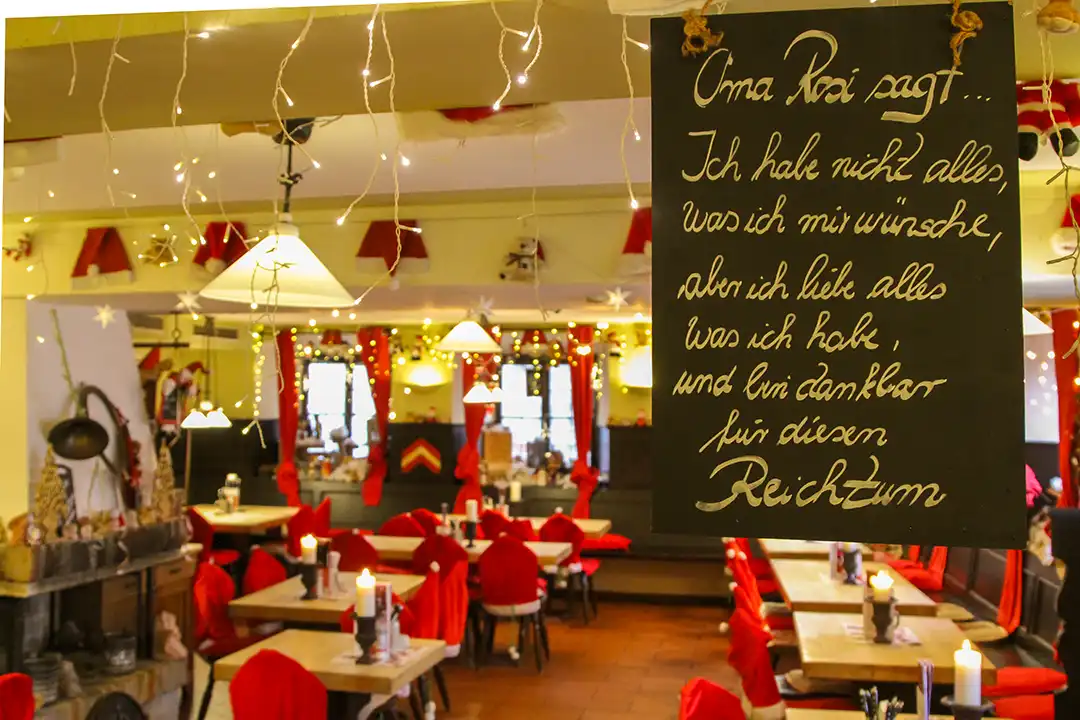 Oma Rosi sagt...
Ich habe nicht alles,
was ich mir wünsche,
aber ich liebe alles
was ich habe,
und bin dankbar
für diesen
Reichtum